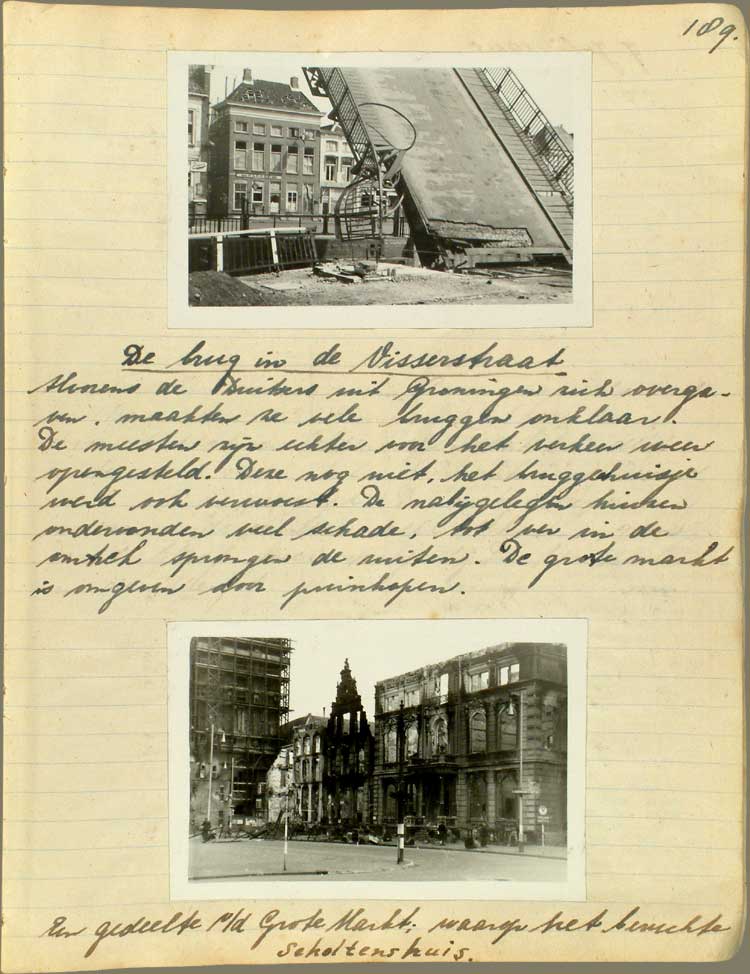 189.
De brug in de Visserstraat
Alvorens de Duitsers uit Groningen zich overga-
ven, maakten ze vele bruggen onklaar.
De meesten zijn echter voor het verkeer weer
opengesteld. Deze nog niet, het bruggehuisje
werd ook verwoest. De nabijgelegen huizen
ondervonden veel schade, tot ver in de
omtrek sprongen de ruiten. De grote markt
is omgeven door puinhopen.
Een gedeelte v/d Grote Markt; waarop het beruchte
Scholtenshuis.